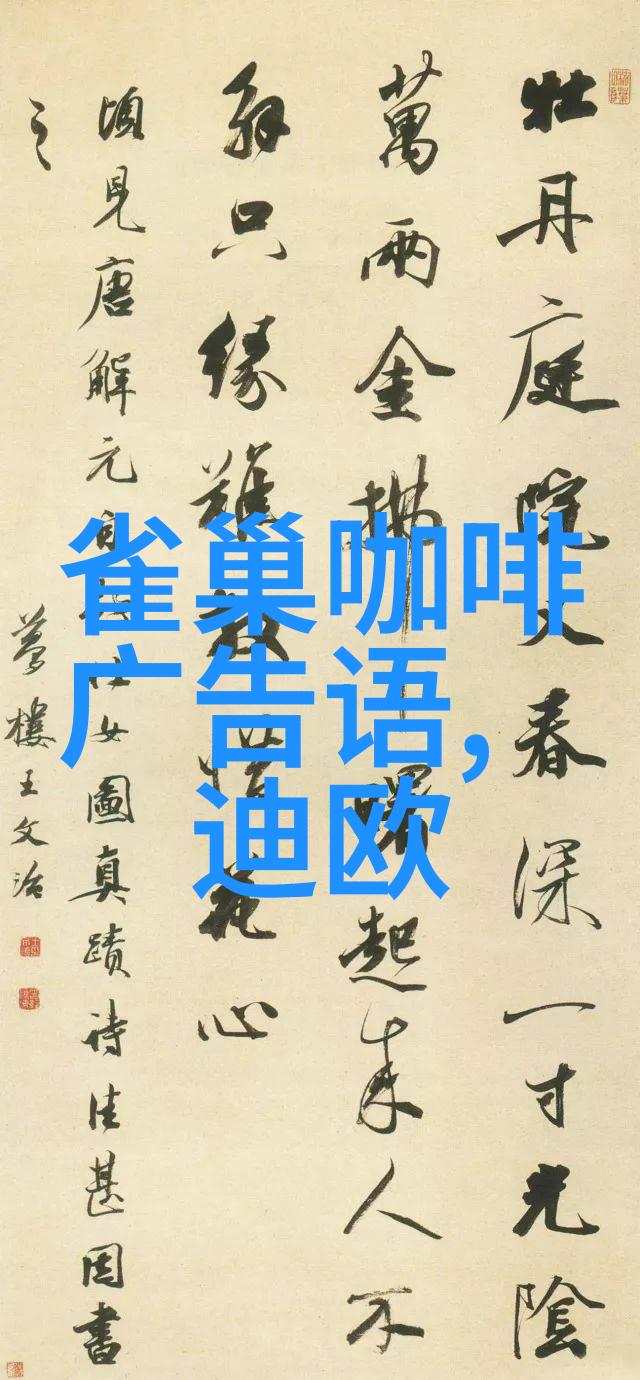 牡丹庭院又春深一寸光陰
萬兩金拂曙起來人不
解只緣難放惜花心
頃見唐解元自仕女圖真蹟詩佳甚因書
之
夢樓王文治
雀巢咖啡
广告语,
迪欧